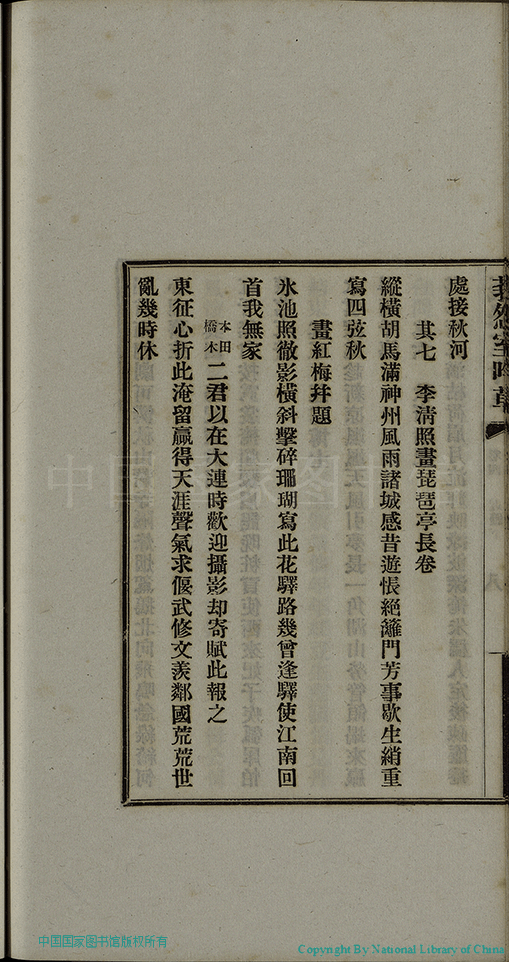 處接秋河
其七 李淸照畫琵琶亭長卷
縱橫胡馬滿神州風雨諸城感昔遊悵絕籬門芳事歇生綃重
寫四弦秋
畫紅梅幷題
氷池照徹影橫斜擊碎珊瑚寫此花驛路幾曾逢驛使江南回
首我無家
本田
橋木
二君以在大連時歡迎攝影却寄賦此報之
東征心折此淹留贏得天涯聲氣求偃武修文羨鄰國荒荒世
亂幾時休
中国国家图书馆版权所有
Copyright By National Library of China